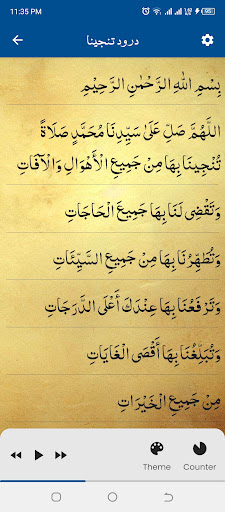 11:35 PM
درود تنجینا
بِسْمِ اللهِ الرَّحْمٰنِ الرَّحِيْمِ
اَللّٰهُمَّ صَلِّ عَلٰى سَيِّدِنَا مُحَمَّدٍ صَلَاةً
تُنْجِينَا بِهَا مِنْ جَمِيعِ الْأَهْوَالِ وَالْآفَاتِ
وَتَقْضِى لَنَا بِهَا جَمِيعَ الْحَاجَاتِ
وَتُطَهِّرُنَا بِهَا مِنْ جَمِيعِ السَّيِّئَاتِ
وَتَرْفَعُنَا بِهَا عِنْدَكَ أَعْلَى الدَّرَجَاتِ
وَتُبَلِّغُنَا بِهَا أَقْصَى الْغَايَاتِ
مِنْ جَمِيعِ الْخَيْرَاتِ
Theme
Counter